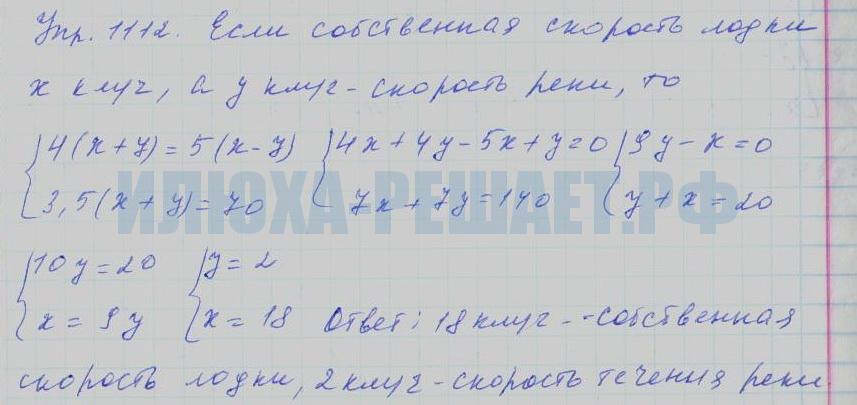 Упр. 1112. Если собственная скорость лодки
x км/ч, а y км/ч - скорость реки, то
{4(x+y)=5(x-y) {4x+4y-5x+y=0 {9y-x=0
{3,5(x+y)=70 {7x+7y=140 {y+x=20
ИЛЮХА-РЕШАЕТ.РФ
{10y=20 {y=2
{x=9y {x=18 Ответ: 18 км/ч - собственная
скорость лодки, 2 км/ч - скорость течения реки.